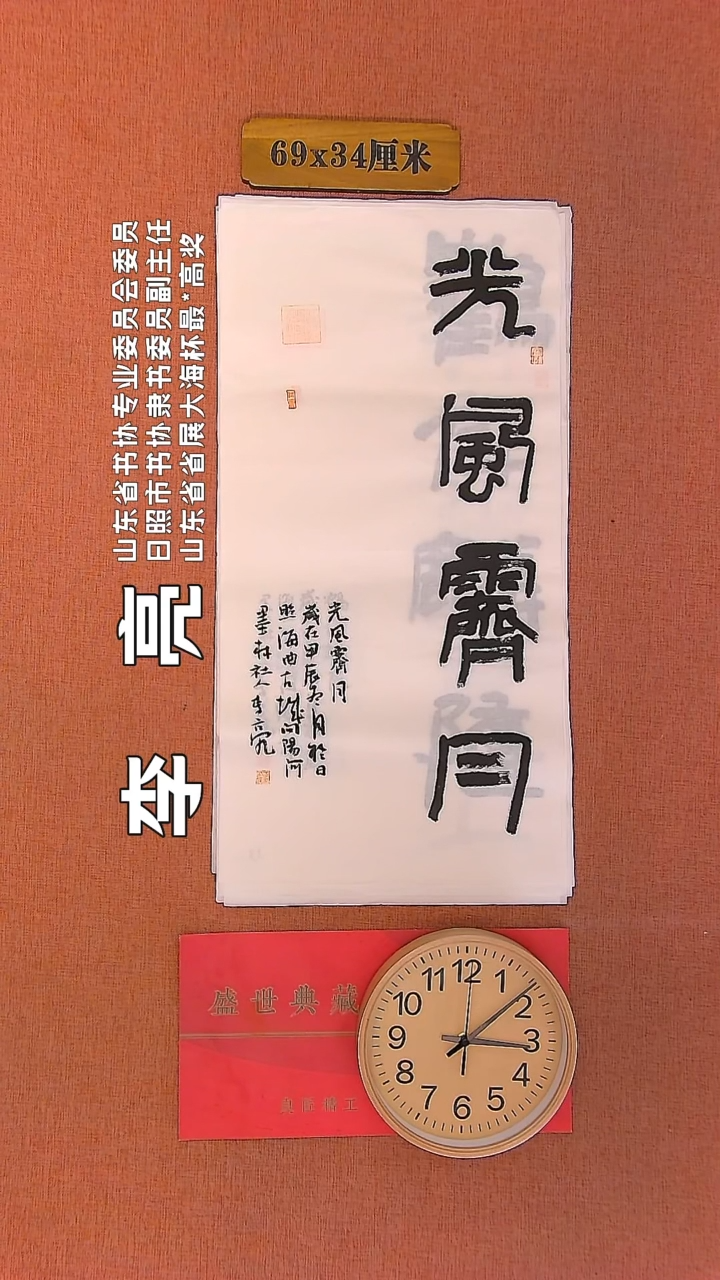 69x34厘米
山东省书协专业委员会委员
日照市书协隶书委员副主任
山东省省展大海杯最*高奖
李亮
光风霽月
光风霽月
歲在甲辰冬月於日
照海曲古城向陽河
墨林社人李亮
盛世典藏
12
1
2
3
4
5
6
7
8
9
10
11